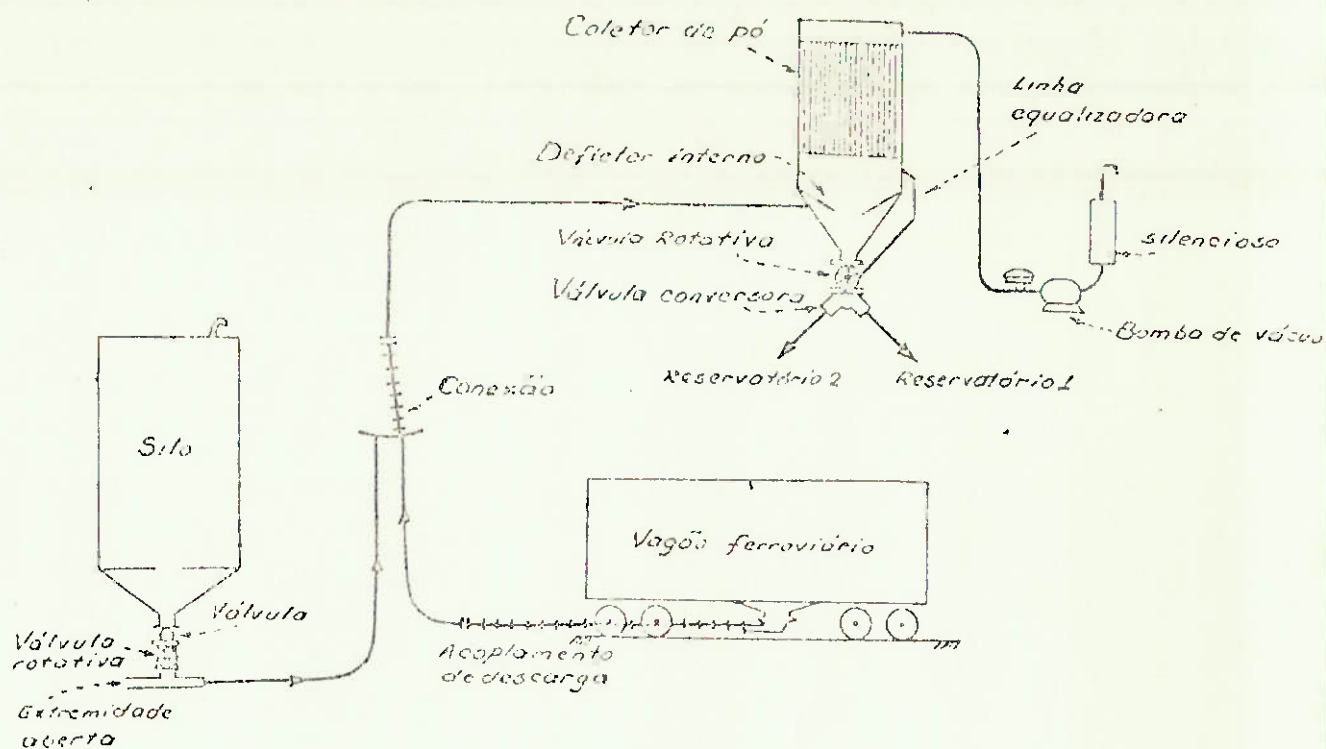 Coletor de pó
Linha
equalizadora
Defletor interno
Válvula Rotativa
Silencioso
Válvula conversora
Bomba de vácuo
Reservatório 2
Reservatório 1
Conexão
Silo
Vagão ferroviário
Válvula
Válvula
rotativa
Acoplamento
de descarga
Extremidade
aberta